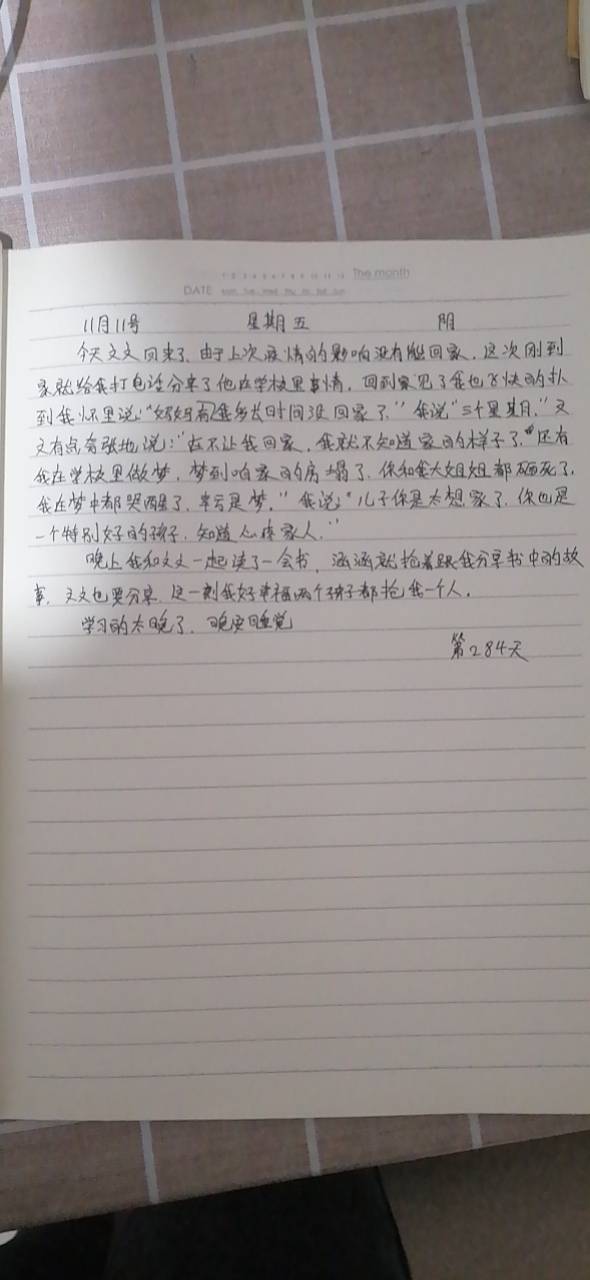 The month
DATE
11月11号 星期五 阴
今天文文回来了、由于上次疫情的影响没有能回家，这次刚到
家就给我打电话分享了他在学校里事情，回到家见了我也飞快的扑
到我怀里说:“妈妈有我多长时间没回家了.”我说“三个星期.”文
文有点夸张地说:“在不让我回家，我就不知道家的样子了.”还有
我在学校里做梦，梦到咱家的房塌了、你和我大姐姐都砸死了，
我在梦中都哭醒了，幸亏是梦.”我说“儿子你是太想家了、你也是
一个特别好的孩子，知道心疼家人.”
晚上我和文文一起读了一会书、涵涵就抢着跟我分享书中的故
事、文文也要分享、这一刻我好幸福两个孩子都抢我一个人.
学习的太晚了、晚安睡觉
第284天